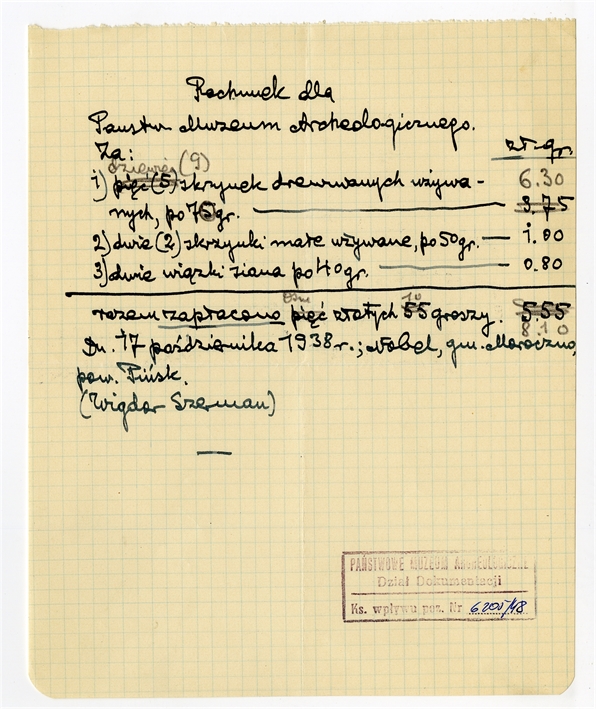 Rachunek dla
Państw. Muzeum Archeologicznego.
Za:
zł. gr.
dziewięć (9)
1) pięć (5) skrzynek drewnianych używa- 6.30
nych, po 7 gr. 3.75
2) dwie (2) skrzynki małe używane, po 50 gr. — 1.00
3) dwie wiązki siana po 40 gr. 0.80
osm 10
razem zapłacono pięć złotych 55 groszy. 5.55
8.10
Dn. 17 października 1938 r.; Nobel, gm. Moroczno,
pow. Pińsk.
(Wigdor Szerman)
PAŃSTWOWE MUZEUM ARCHEOLOGICZNE
Dział Dokumentacji
Ks. wpływu poz. Nr 6200/48